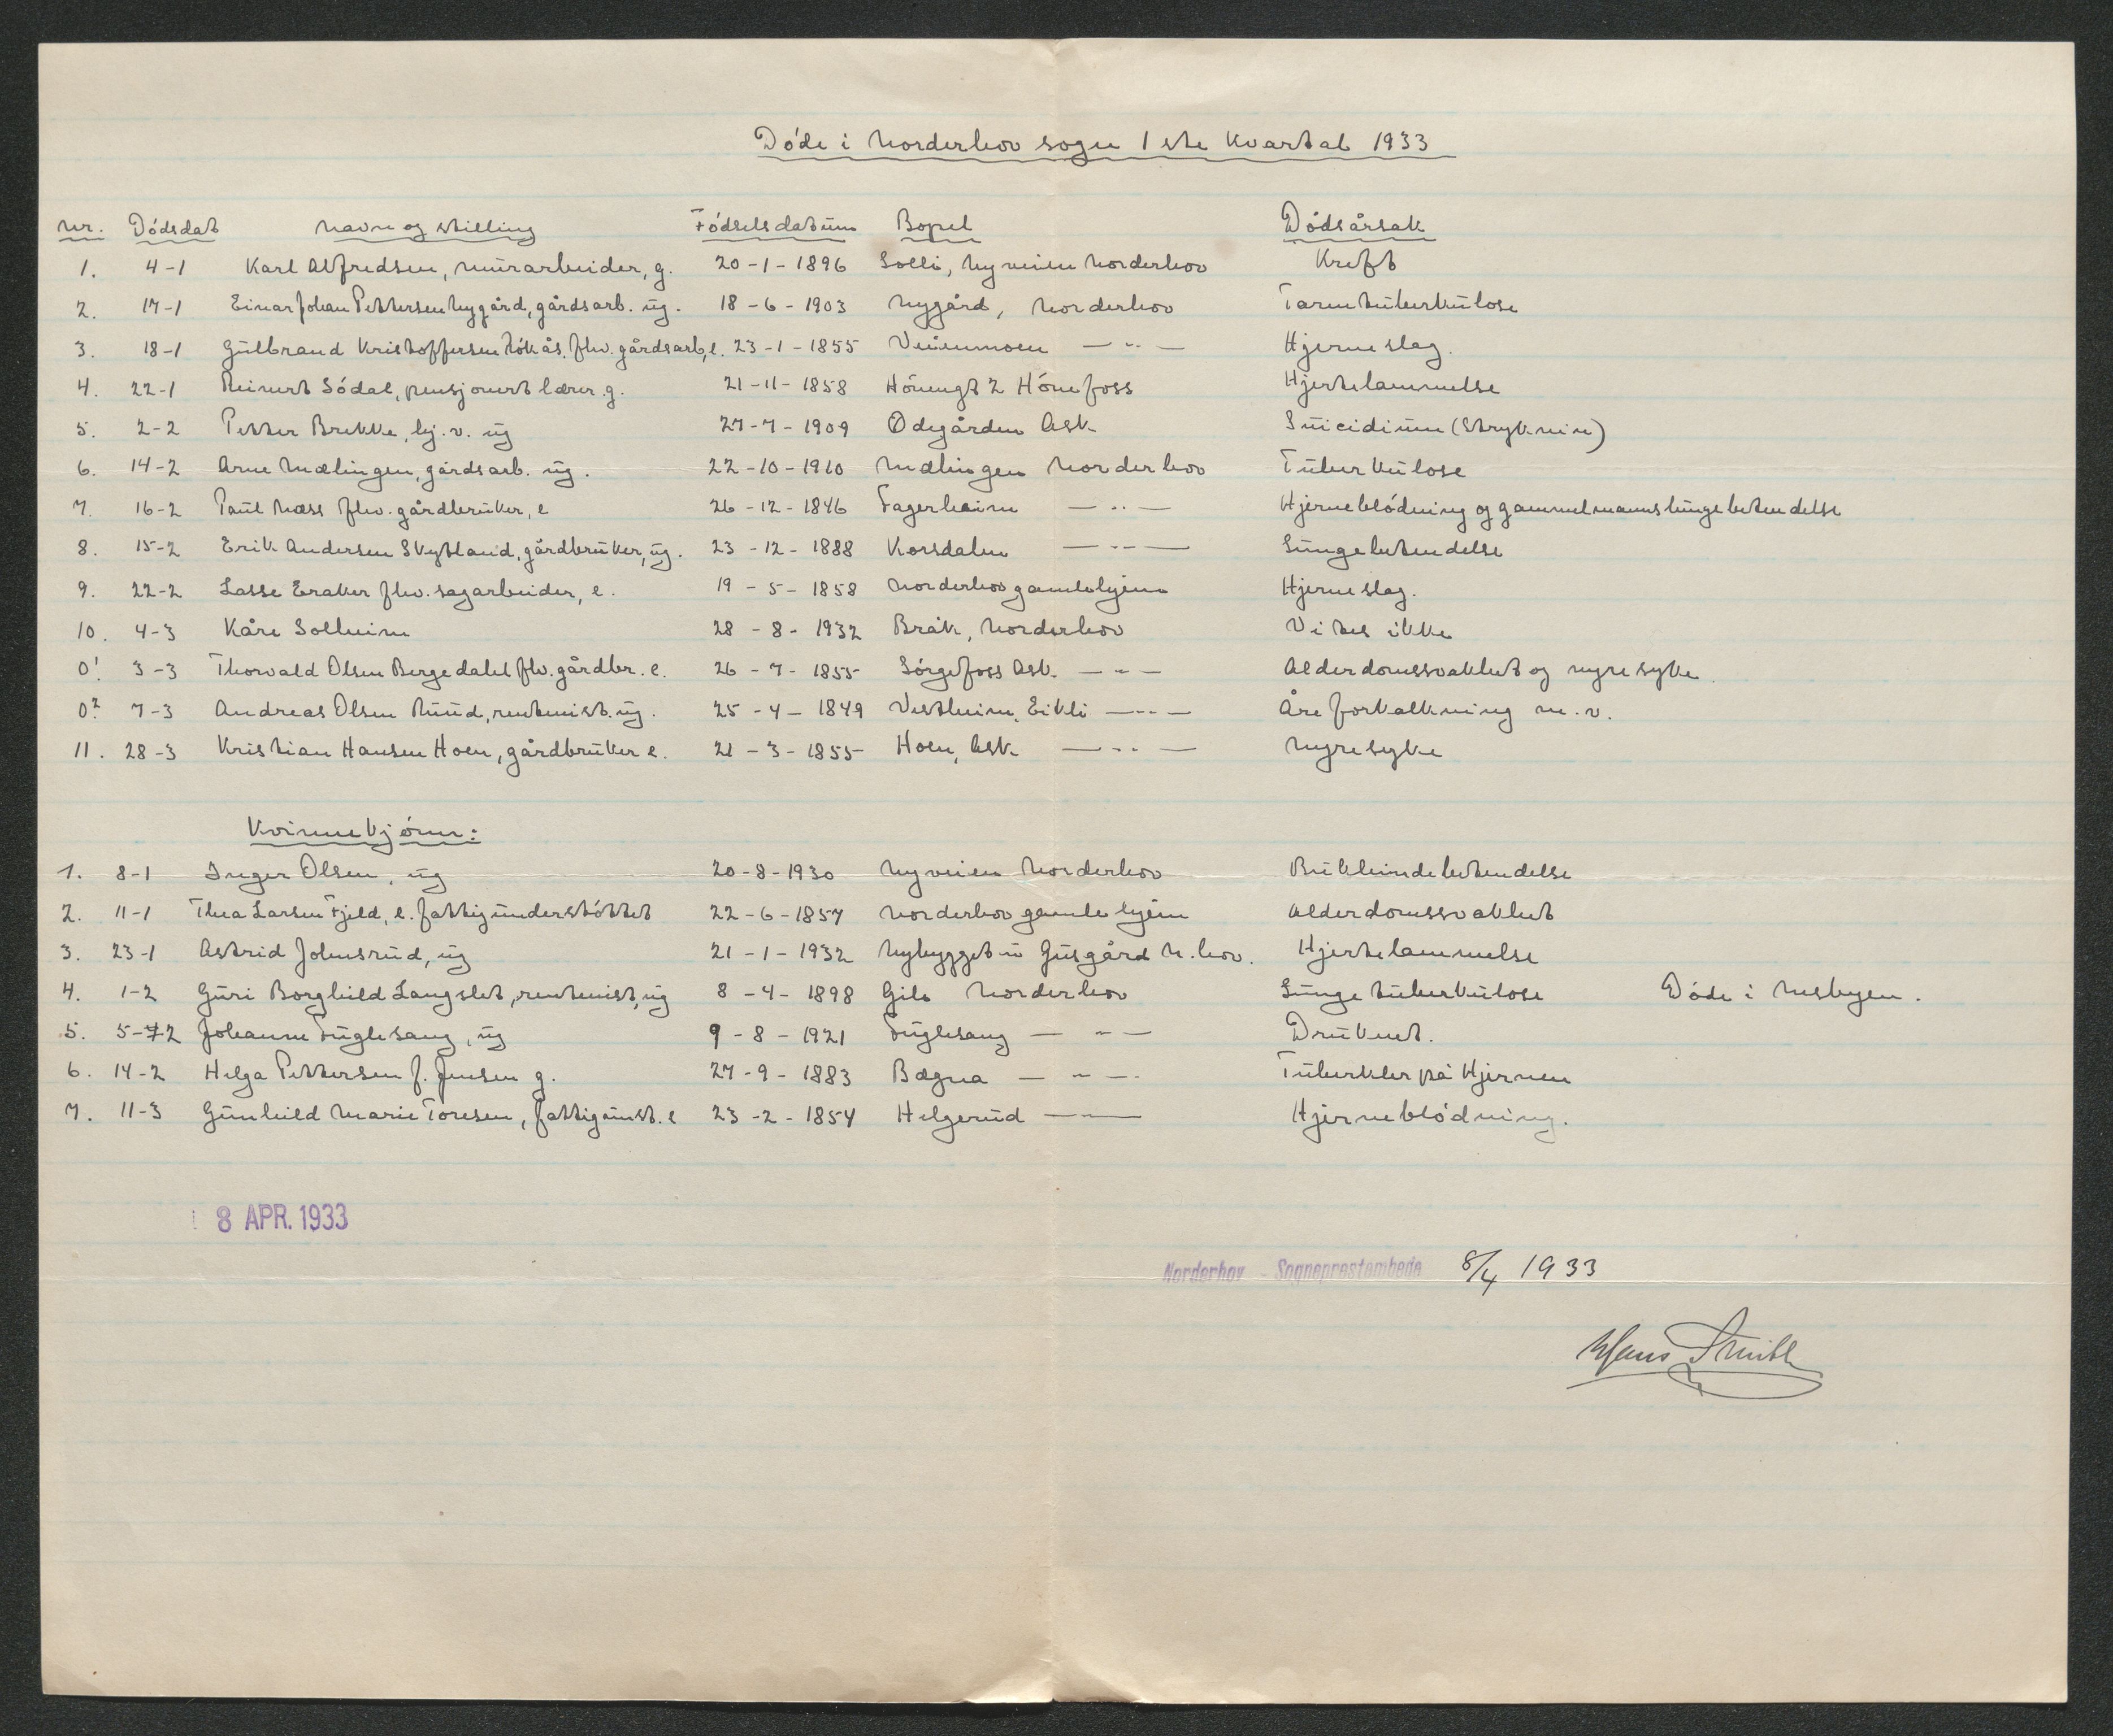 Døde i Norderhov sogn 1ste Kvartal 1933
Nr. Dødsdat Navn og stilling Fødselsdatum Bopel Dødsårsak
1. 4-1 Karl Alfredsen, murarbeider, g. 20-1-1896 Solli, Nyveien Norderhov Kreft
2. 17-1 Einar Johan Pettersen Nygård, gårdsarb. ug. 18-6-1903 Nygård, Norderhov Tarmtuberkulose
3. 18-1 Gulbrand Kristoffersen Rökås, fhv. gårdsarb, e. 23-1-1855 Veienmoen — " — Hjerneslag.
4. 22-1 Reinert Sødal, pensjonert lærer. g. 21-11-1858 Hønengt 2 Hønefoss Hjertelammelse
5. 2-2 Petter Brekke, lj. v. ug 27-7-1909 Ødegården Ask Suicidium (Stryknin)
6. 14-2 Arne Mælingen, gårdsarb. ug. 22-10-1910 Mælingen Norderhov Tuberkulose
7. 16-2 Paul Næss fhv. gårdbruker, e 26-12-1846 Fagerheim — " — Hjerneblødning og gammelmannslungebetendelse
8. 15-2 Erik Andersen Skytland, gårdbruker, ug. 23-12-1888 Korsdalen — " — Lungebetendelse
9. 22-2 Lasse Eraker fhv. sagarbeider, e. 19-5-1858 Norderhov gamlehjem Hjerneslag.
10. 4-3 Kåre Solheim 28-8-1932 Bråk, Norderhov Vites ikke
0¹. 3-3 Thorvald Olsen Bergedalet fhv. gårdbr. e. 26-7-1855 Sørgefoss Ask. — " — Alderdomssvakhet og nyresyke.
0². 7-3 Andreas Olsen Ruud, rentenist. ug. 25-4-1849 Vestheim, Eikli — " — Åreforkalkning m.v.
11. 28-3 Kristian Hansen Hoen, gårdbruker e. 21-3-1855 Hoen, Ask — " — Nyresyke
Kvinnekjønn:
1. 8-1 Inger Olsen, ug 20-8-1930 Nyveien Norderhov Bukhindebetendelse
2. 11-1 Thea Larsen Fjeld, e. fattigunderstøttet 22-6-1857 Norderhov gamlehjem Alderdomssvakhet
3. 23-1 Astrid Johnsrud, ug 21-1-1932 Nybygget u Gusgård N.hov. Hjertelammelse
4. 1-2 Guri Borghild Langslet, rentenist, ug 8-4-1898 Gile Norderhov Lungetuberkulose Døde i Nesbyen.
5. 5-2 Johanne Fuglesang, ug 9-8-1921 Fuglesang — " — Druknet.
6. 14-2 Helga Pettersen f. Jensen g. 27-9-1883 Bægna — " — Tuberkler på Hjernen
7. 11-3 Gunhild Marie Toresen, fattigunst. e 23-2-1854 Helgerud — " — Hjerneblødning.
8 APR. 1933
Norderhov Sogneprestembede 8/4 1933
Hans Smith